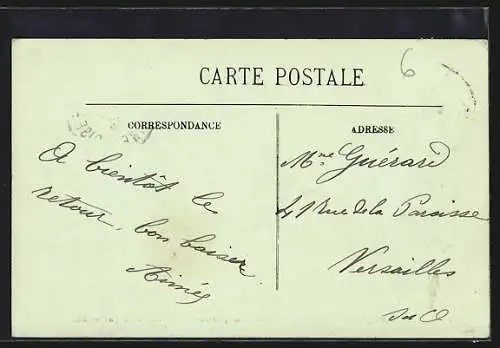 6
CARTE POSTALE
CORRESPONDANCE
A bientôt le
retour, bon baiser
Aimée
ADRESSE
Mme Guérard
41 Rue de la Paroisse
Versailles
S et O